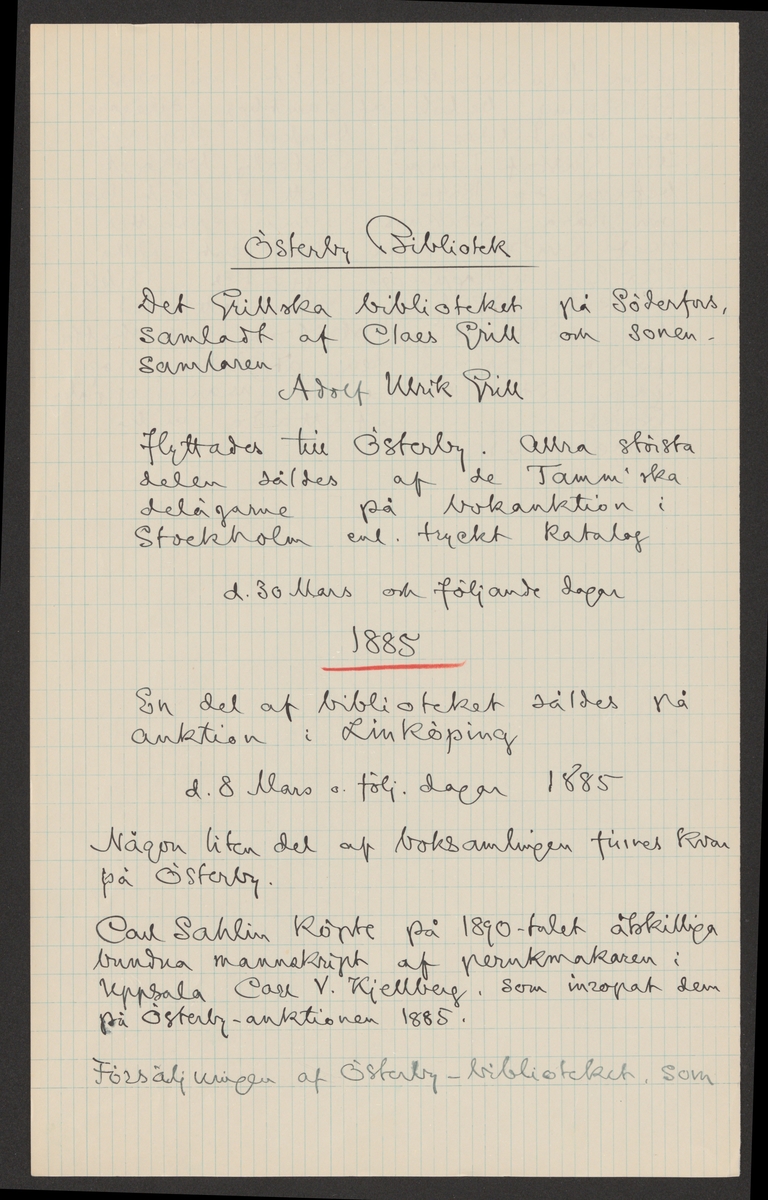 Österby Bibliotek
Det Grillska biblioteket på Söderfors,
samladt af Claes Grill och sonen-
samlaren
Adolf Ulrik Grill
flyttades till Österby. Allra största
delen såldes af de Tamm'ska
delägarne på bokauktion i
Stockholm enl. tryckt katalog
d. 30 Mars och följande dagar
1885
En del af biblioteket såldes på
auktion i Linköping
d. 8 Mars o. följ. dagar 1885
Någon liten del af boksamlingen finnes kvar
på Österby.
Carl Sahlin köpte på 1890-talet åtskilliga
bundna manuskript af perukmakaren i
Uppsala Carl V. Kjellberg, som inropat dem
på Österby-auktionen 1885.
Försäljningen af Österby-biblioteket, som